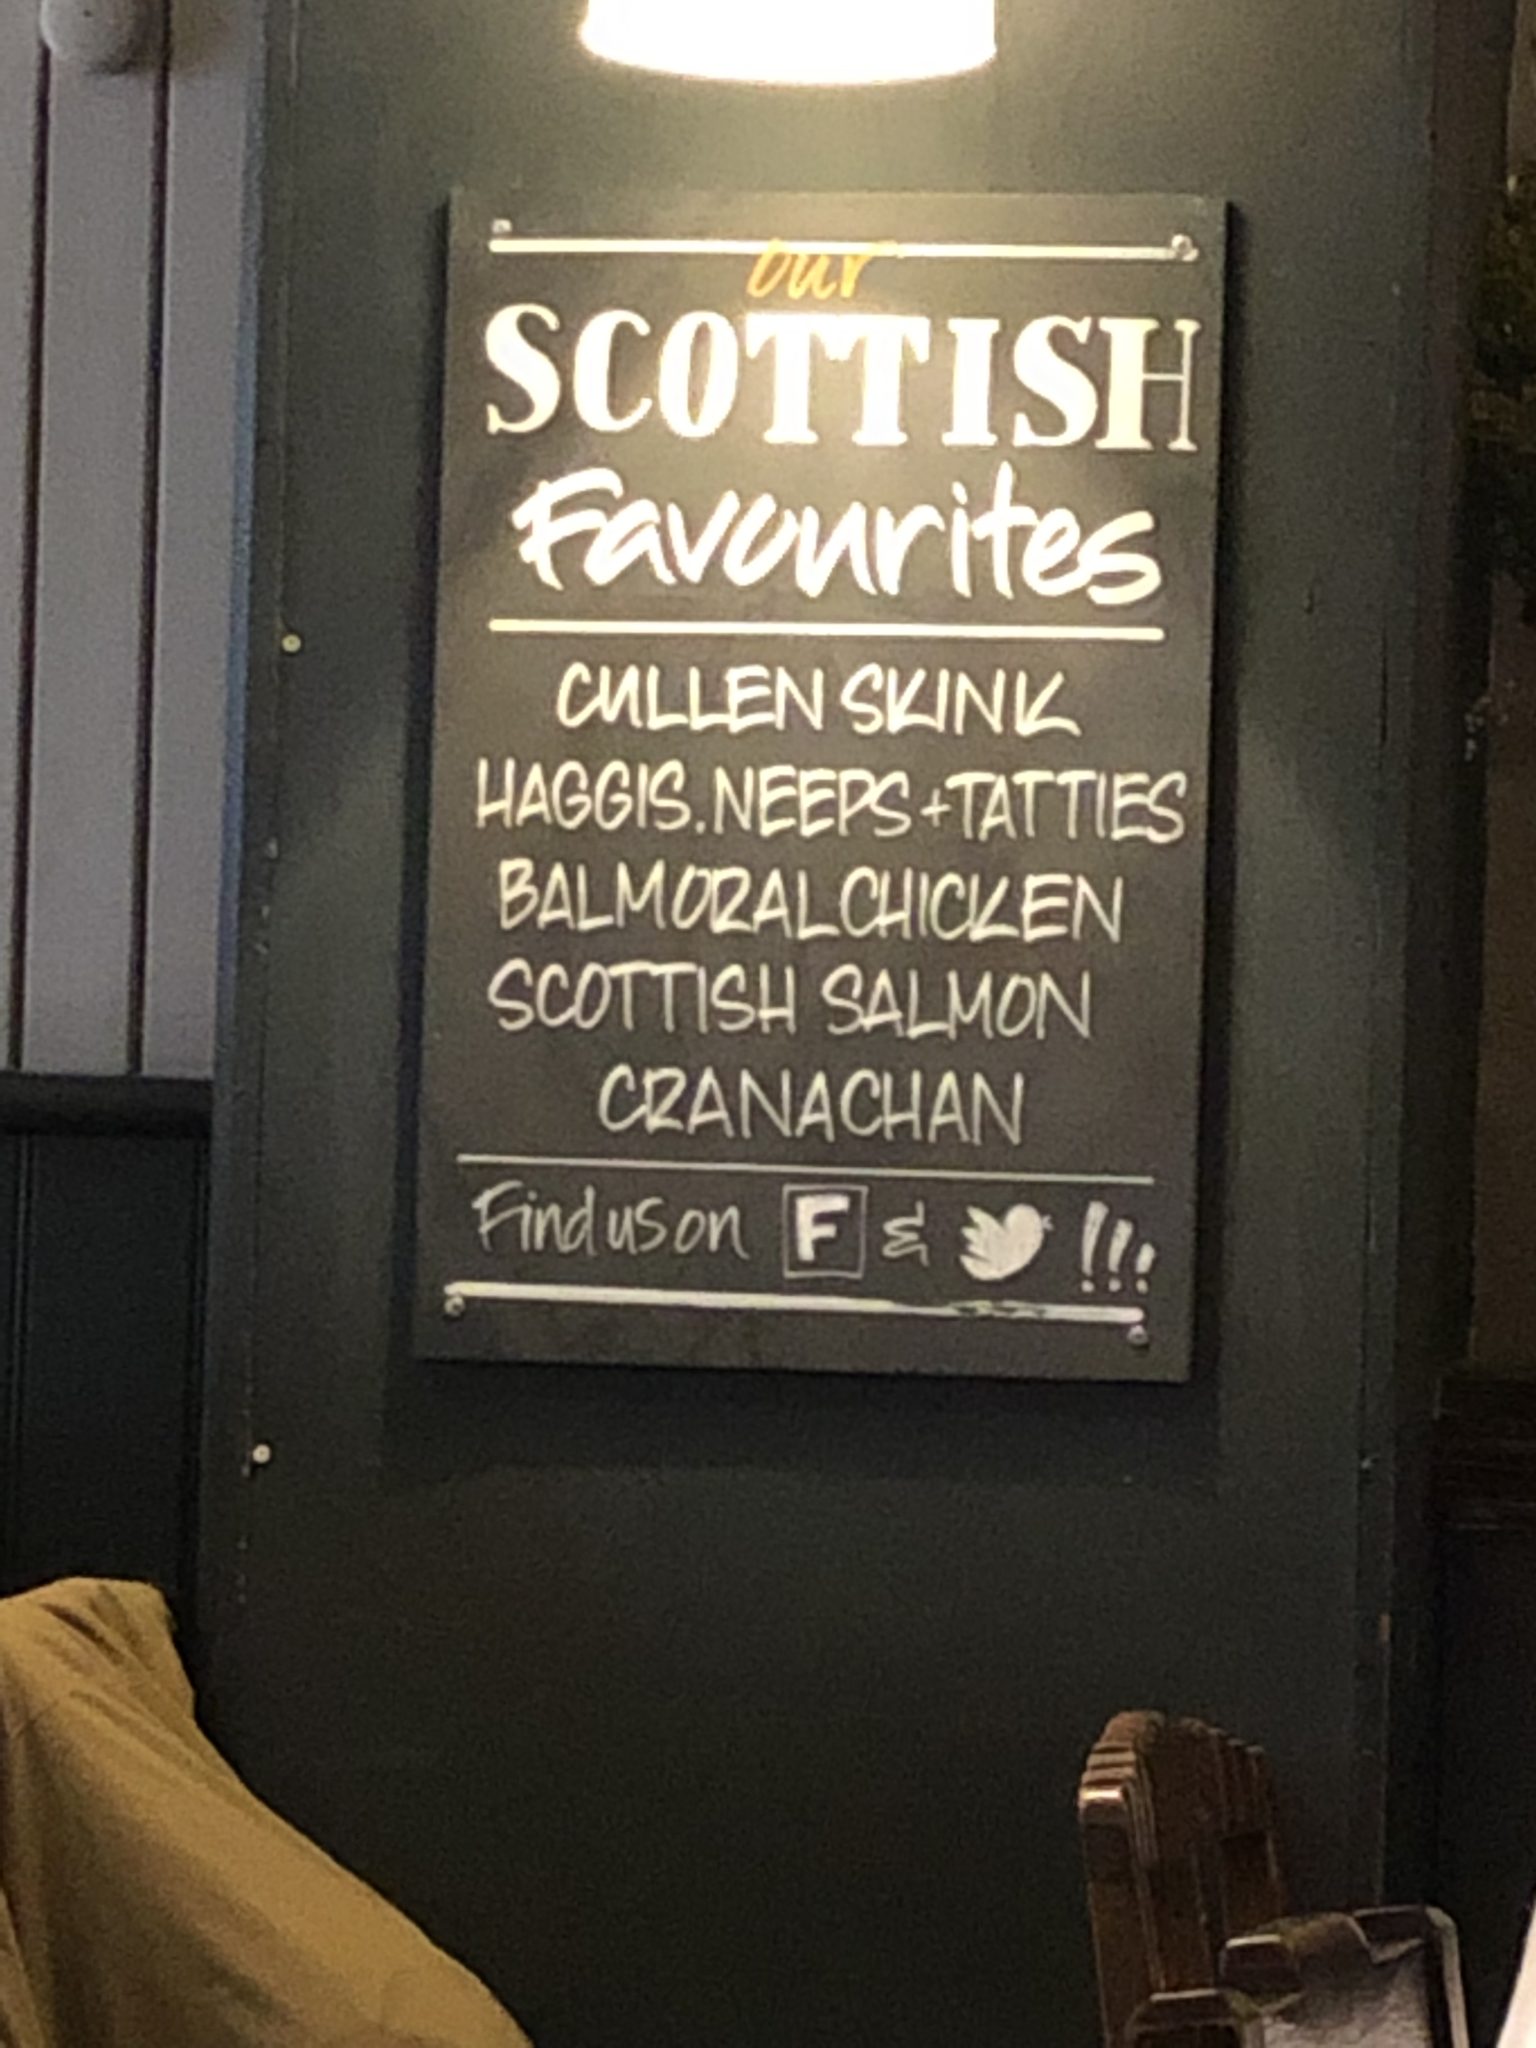 our
SCOTTISH
Favourites
CULLEN SKINK
HAGGIS. NEEPS + TATTIES
BALMORAL CHICKEN
SCOTTISH SALMON
CRANACHAN
Find us on F & !!!